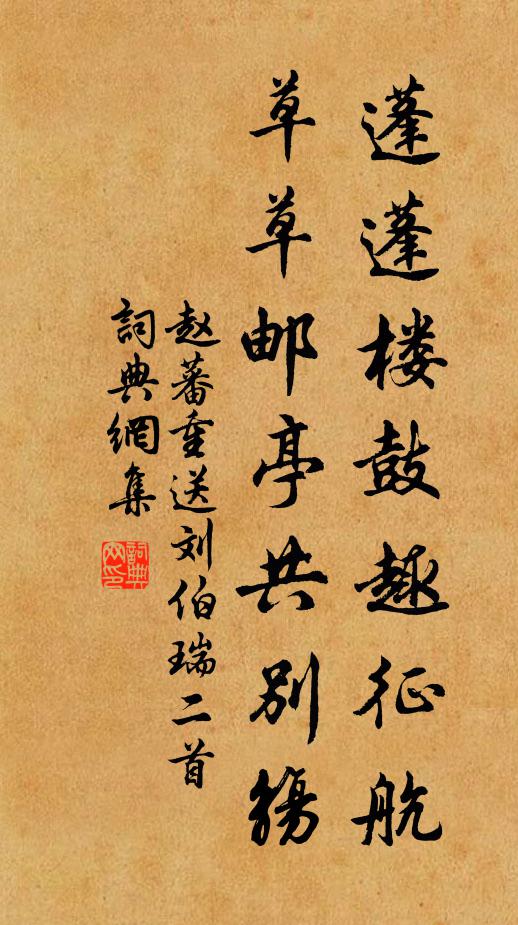 蓬蓬楼鼓趣征航
草草邮亭共别觞
赵蕃重送刘伯瑞二首
詞典網集
詞典
网印